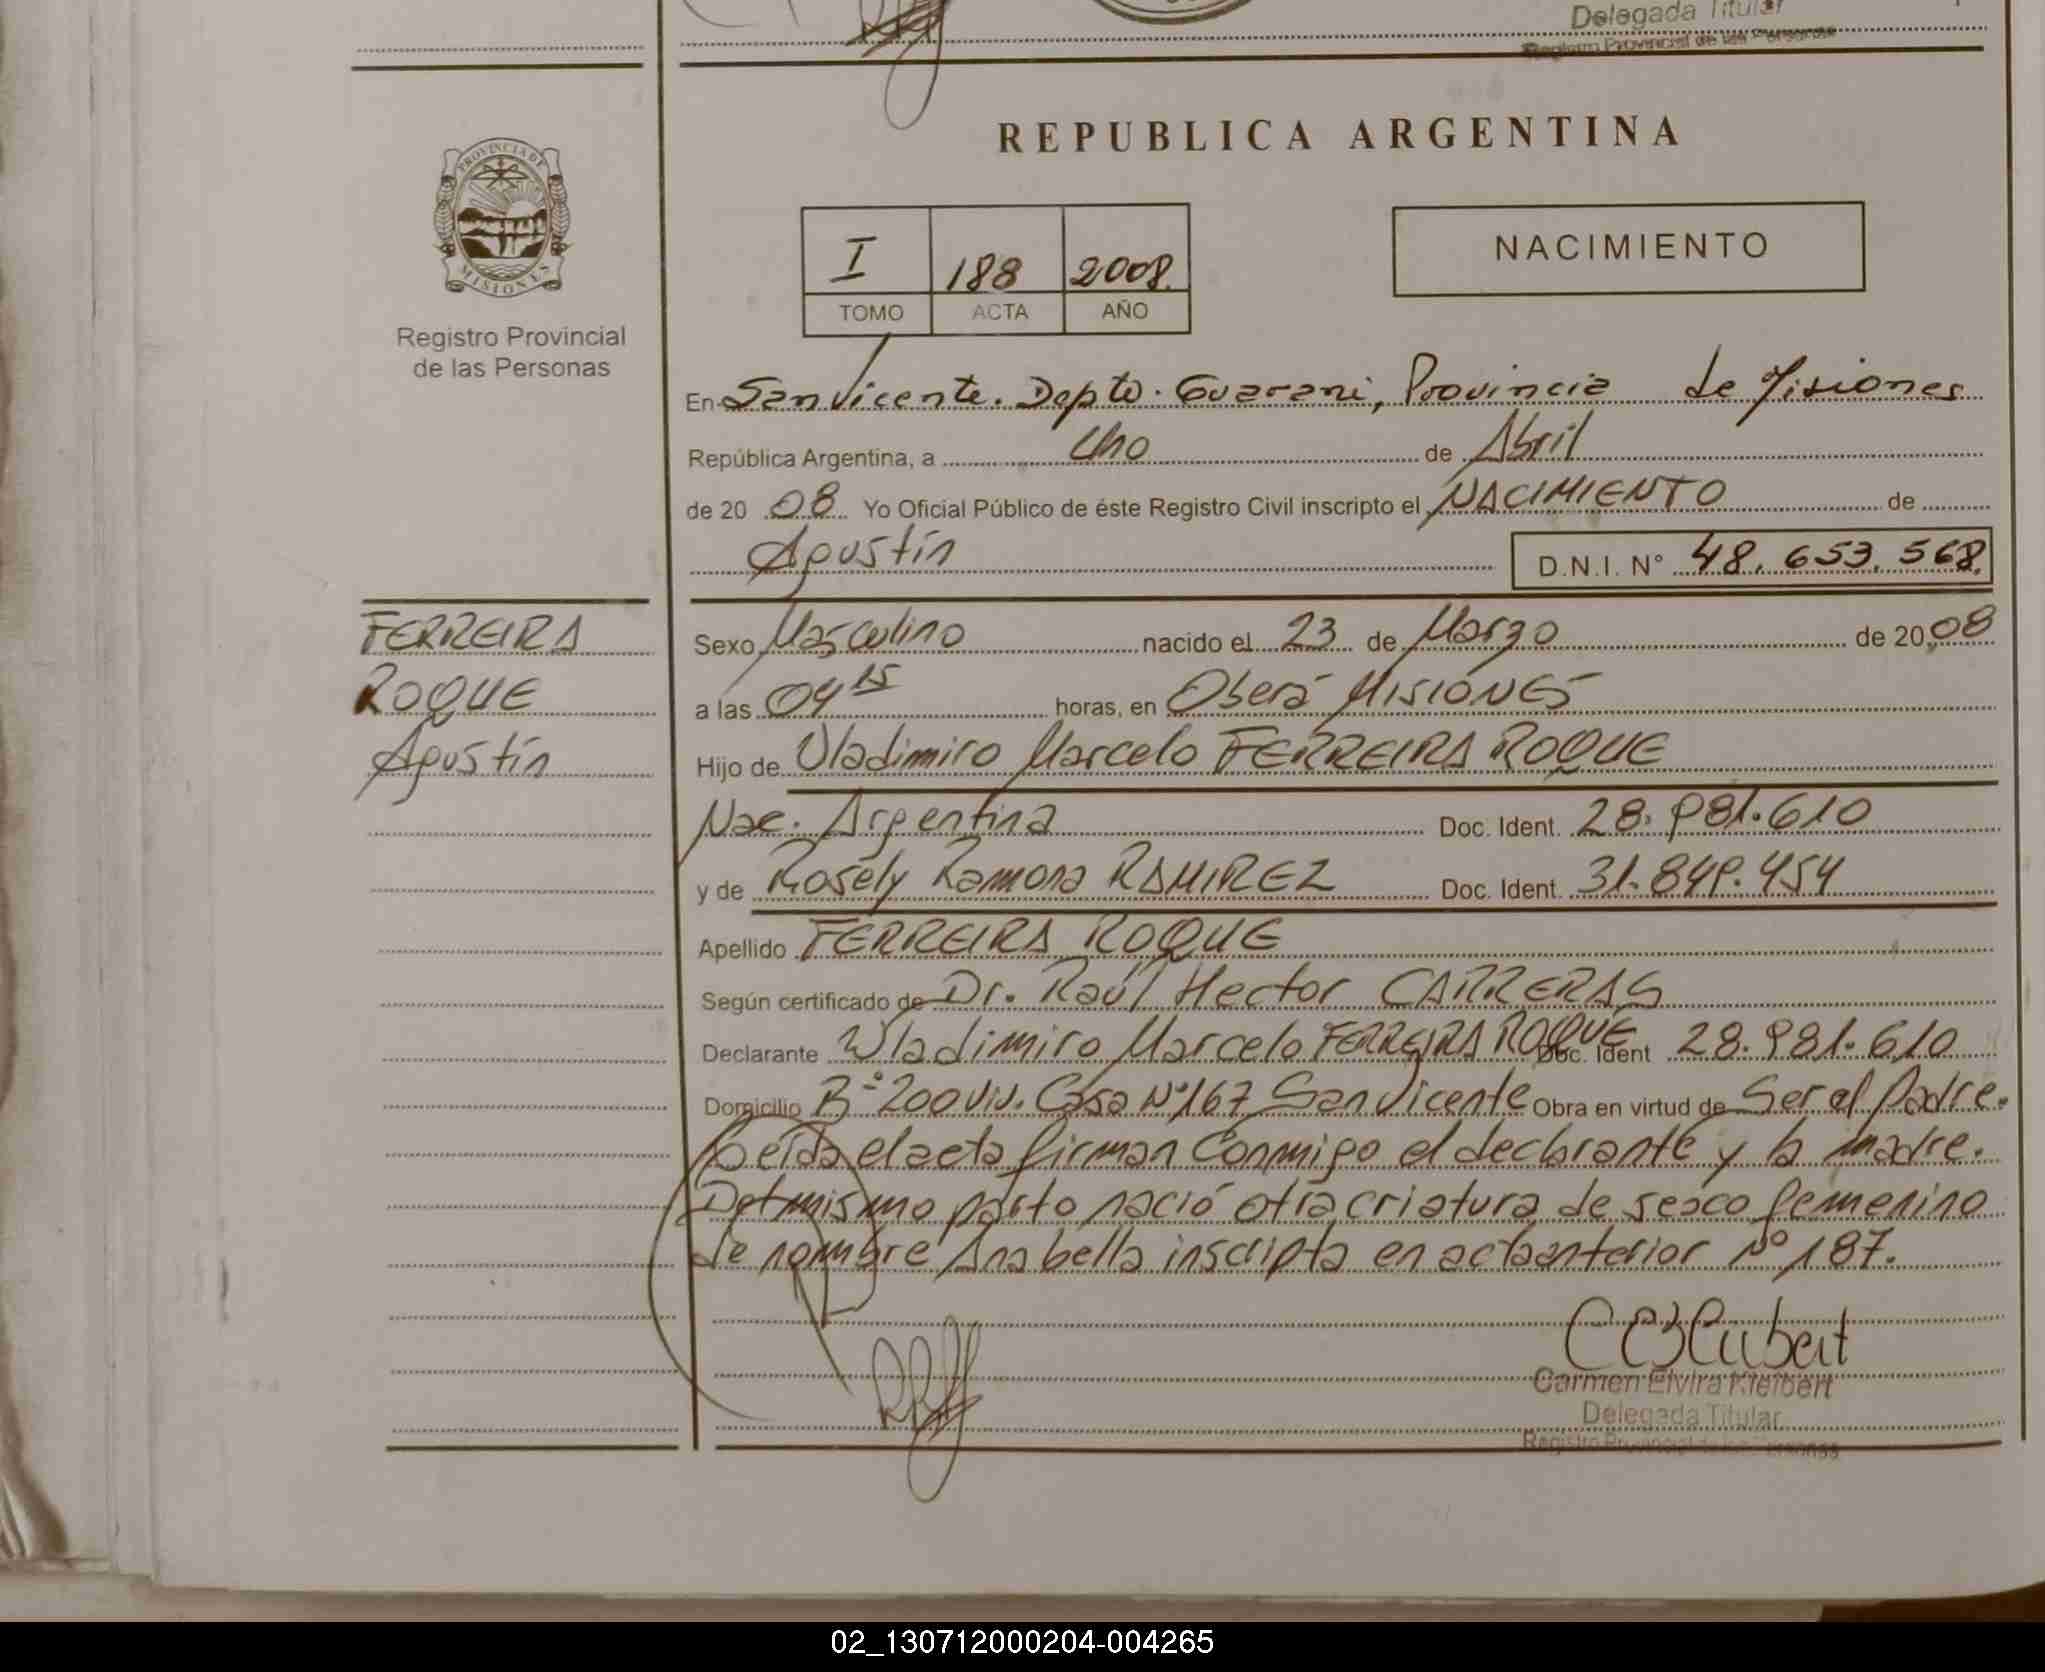 Delegada Titular
Registro Provincial de las Personas
PROVINCIA DE
MISIONES
Registro Provincial
de las Personas
REPUBLICA ARGENTINA
I 188 2008.
TOMO ACTA AÑO
NACIMIENTO
En San Vicente. Depto. Guarani, Provincia de Misiones
República Argentina, a Uno de Abril
de 20 08 Yo Oficial Público de éste Registro Civil inscripto el NACIMIENTO de
Agustín D.N.I. N° 48.653.568.
FERREIRA
ROQUE
Agustín
Sexo Masculino nacido el 23 de Marzo de 20 08
a las 04 15 horas, en Oberá MISIONES
Hijo de Vladimiro Marcelo FERREIRA ROQUE
Nac. Argentina Doc. Ident. 28.981.610
y de Rosely Ramona RAMIREZ Doc. Ident. 31.849.454
Apellido FERREIRA ROQUE
Según certificado de Dr. Raúl Hector CARRERAS
Declarante Wladimiro Marcelo FERREIRA ROQUE Doc. Ident 28.981.610
Domicilio B° 200 Viv. Casa N° 167 San Vicente Obra en virtud de Ser el Padre.
Leída el acta firman Conmigo el declarante y la madre.
Del mismo parto nació otra criatura de sexo femenino
de nombre Anabella inscripta en acta anterior N° 187.
Carmen Elvira Kleibert
Delegada Titular
Registro Provincial de las Personas
02_130712000204-004265